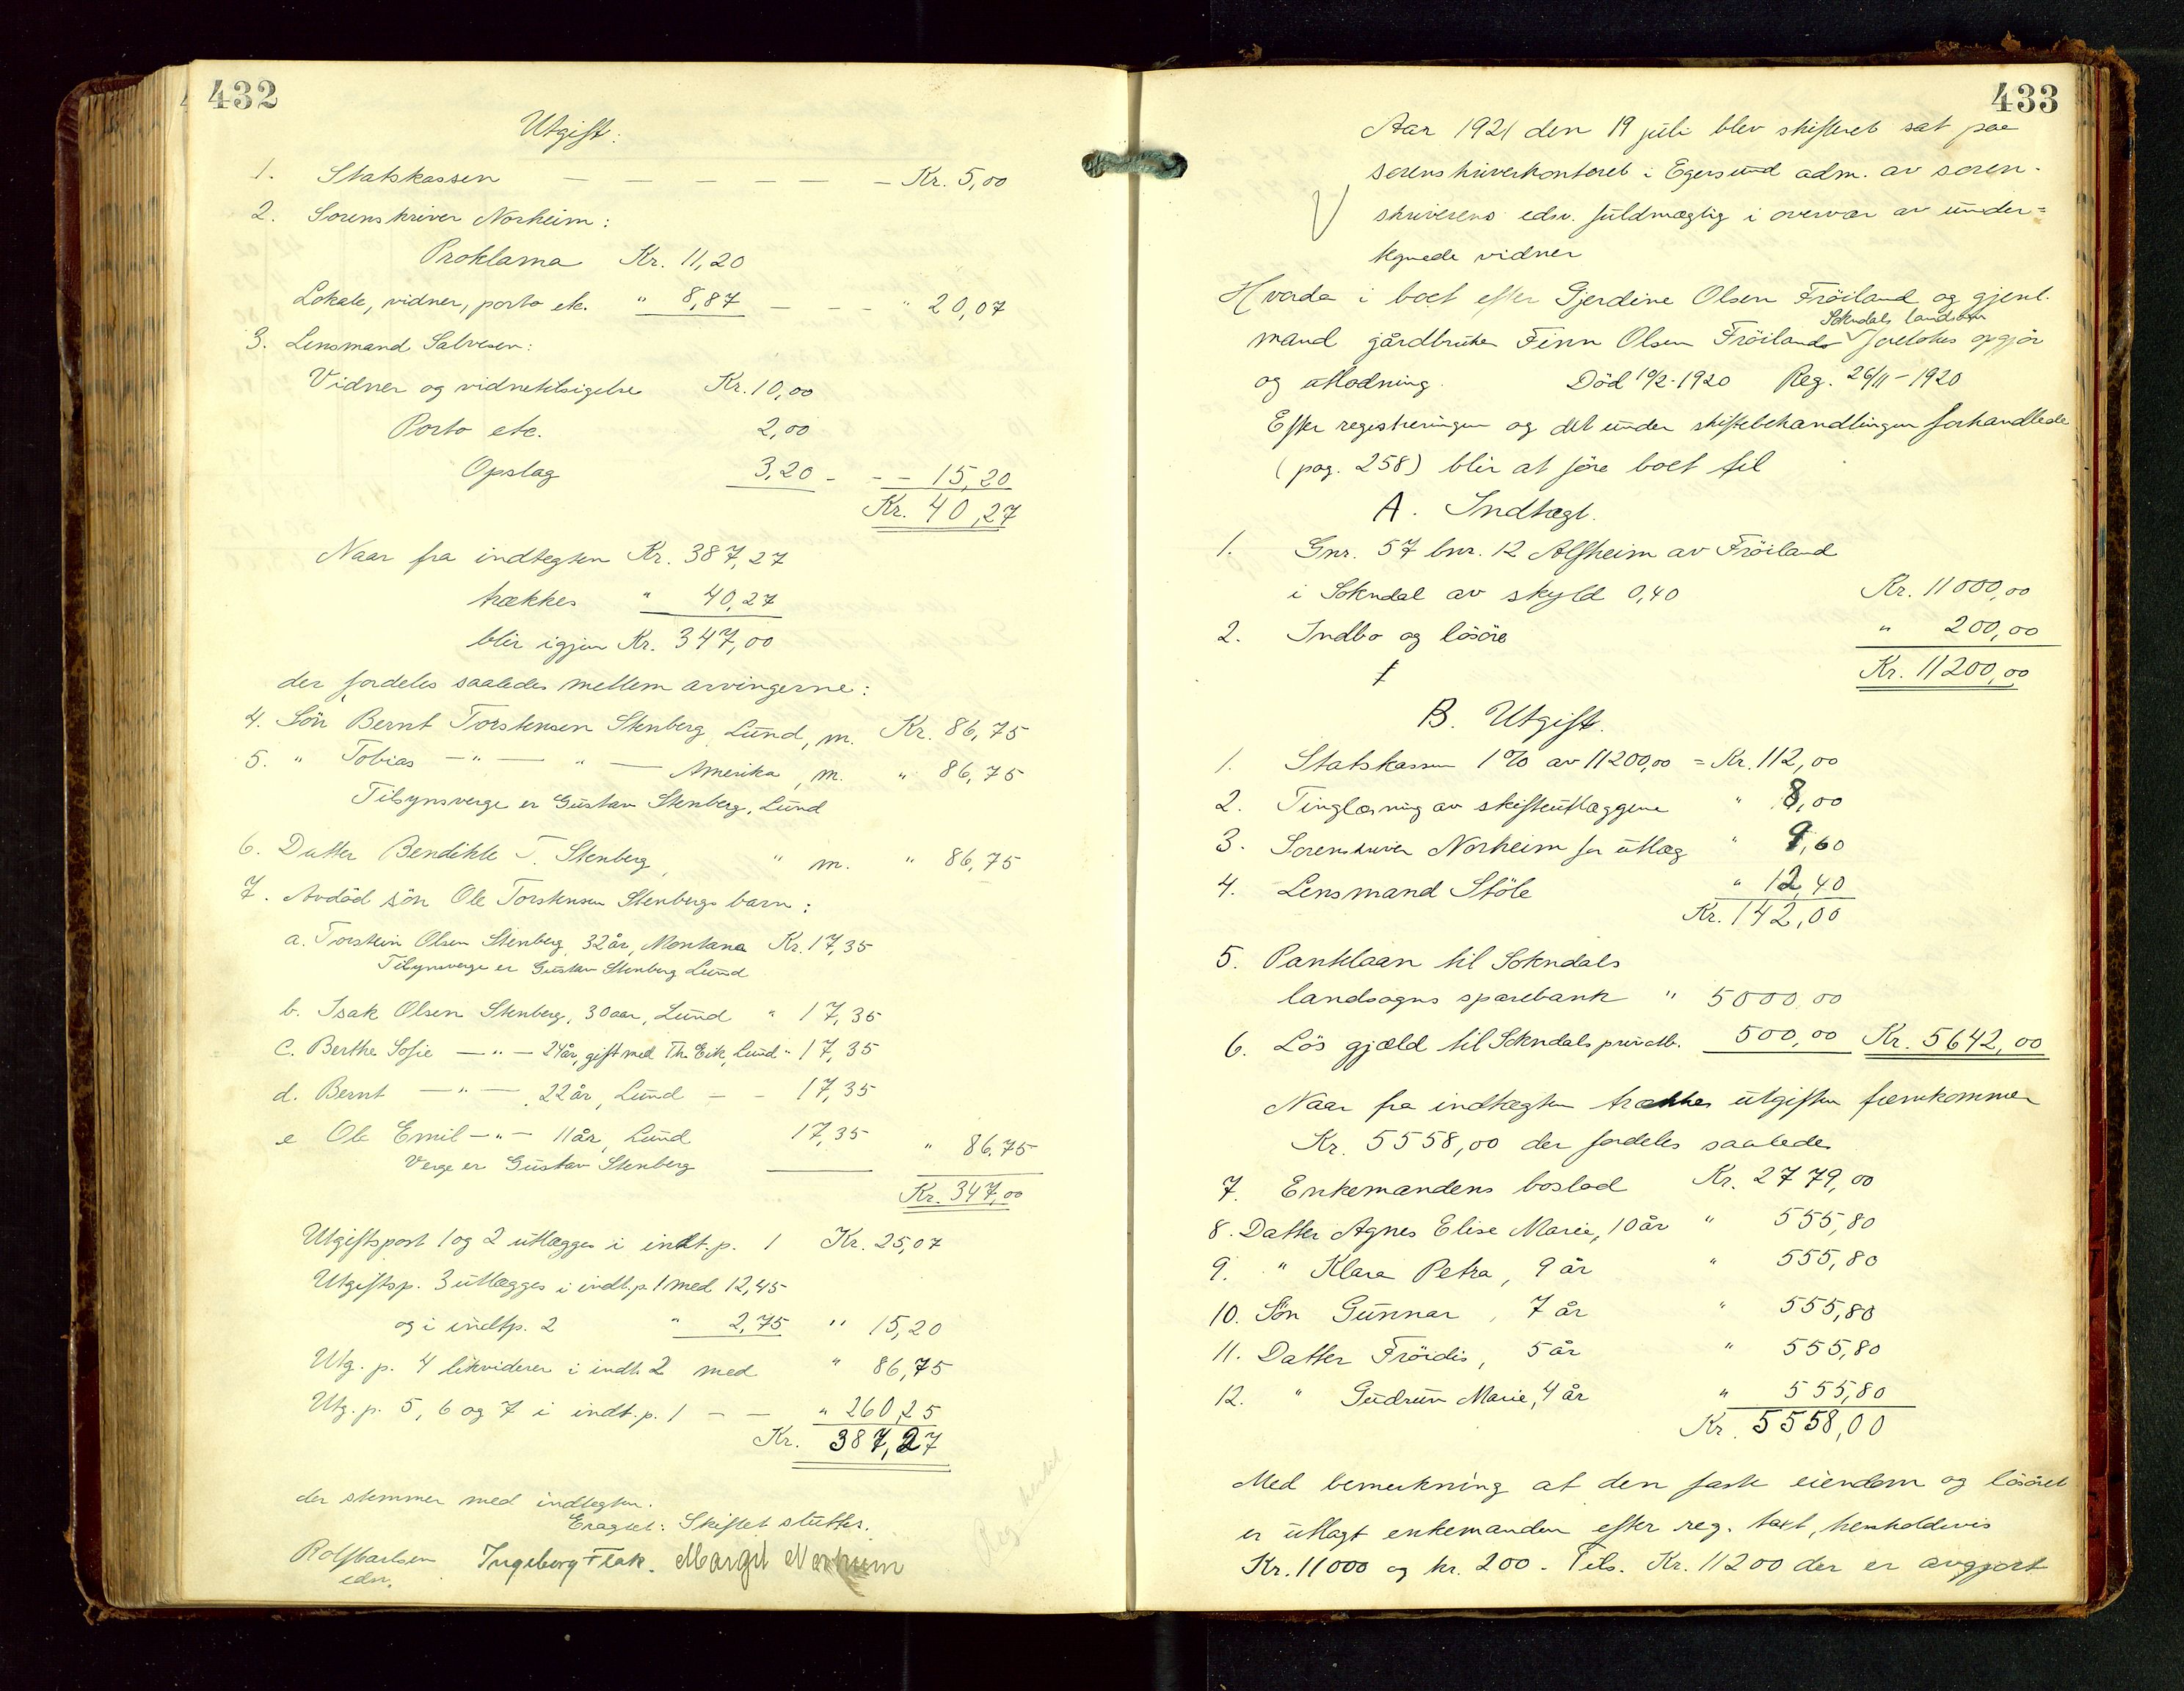 432
Utgift:
1. Statskassen — — — — — — Kr. 5,00
2. Sorenskriver Norheim:
Proklama Kr. 11,20
Lokale, vidner, porto etc. " 8,87 — - - " 20,07
3. Lensmand Salvesen:
Vidner og vidnetilsigelse Kr. 10,00
Porto etc. 2,00
Opslag 3,20 - - - 15,20
Kr. 40,27
Naar fra indtegten Kr. 387,27
trækkes " 40,27
blir igjen Kr. 347,00
der fordeles saaledes mellem arvingerne:
4. Sön Bernt Torstensen Stenberg, Lund, m. Kr. 86,75
5. " Tobias — " — " — Amerika, m. " 86,75
Tilsynsverge er Gustav Stenberg, Lund
6. Datter Bendikte T. Stenberg, " m. " 86,75
7. Avdöd sön Ole Torstensen Stenbergs barn:
a. Torstein Olsen Stenberg, 32 år, Montana Kr. 17,35
Tilsynsverge er Gustav Stenberg Lund
b. Isak Olsen Stenberg, 30 aar, Lund " 17,35
c. Berthe Sofie — " — 24 år, gift med Th. Eik, Lund " 17,35
d. Bernt — " — , 22 år, Lund - - 17,35
e Ole Emil — " — 11 år, Lund 17,35 " 86,75
Verge er Gustav Stenberg
Kr. 347,00
Utgiftspost 1 og 2 utlægges i indt. p. 1 Kr. 25,07
Utgiftsp. 3 utlægges i indt. p. 1 med 12,45
og i indtp. 2 " 2,75 " 15,20
Utg. p. 4 likviderer i indt. 2 med " 86,75
Utg. p. 5, 6 og 7 i indt. p. 1 — — " 260,25
Kr. 387,27
der stemmer med indtegten.
Eragtet: Skiftet sluttes.
Rolf Carlsen Ingeborg Flak. Margit Norheim
edsv.
433
Aar 1921 den 19 juli blev skifteret sat paa
sorenskriverkontoret i Egersund adm. av soren-
skriverens edsv. fuldmægtig i overvær av under=
tegnede vidner
Hvorda i boet efter Gjerdine Olsen Fröiland og gjenl.
Sokndals landsogn
mand gårdbruker Finn Olsen Fröilands foretokes opgjör
og utlodning. Död 19/2-1920 Reg. 26/11-1920
Efter registreringen og det under skiftebehandlingen forhandlede
(pag. 258) blir at före boet til
A. Indtægt.
1. Gnr. 57 bnr. 12 Alfheim av Fröiland
i Sokndal av skyld 0,40 Kr. 11000,00
2. Indbo og lösöre " 200,00
Kr. 11200,00
B. Utgift.
1. Statskassen 1% av 11200,00 = Kr. 112,00
2. Tinglæsning av skifteutlæggene " 8,00
3. Sorenskriver Norheim for utlæg " 9,60
4. Lensmand Stöle " 12,40
Kr. 142,00
5. Pantelaan til Sokndals
landsogns sparebank " 5000,00
6. Lös gjæld til Sokndals privatb. 500,00 Kr. 5642,00
Naar fra indtægten trækkes utgiften fremkommer
Kr. 5558,00 der fordeles saaledes
7. Enkemandens boslod Kr. 2779,00
8. Datter Agnes Elise Marie, 10 år " 555,80
9. " Klara Petra, 9 år " 555,80
10. Sön Gunnar, 7 år " 555,80
11. Datter Fröidis, 5 år " 555,80
12. " Gudrun Marie, 4 år " 555,80
Kr. 5558,00
Med bemerkning at den faste eiendom og lösöret
er utlagt enkemanden efter reg. taxt, henholdsvis
Kr. 11000 og kr. 200. Tils. Kr. 11200 der er avgjort